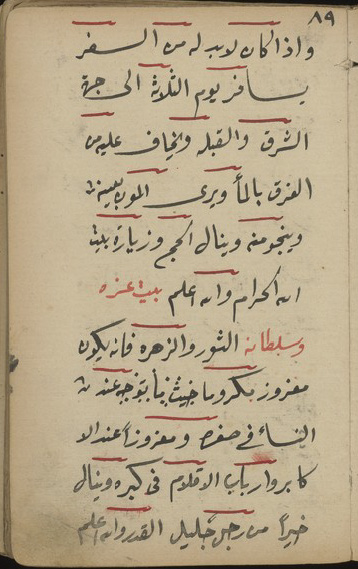 ٨٩
واذا كان لابد له من السفر
يسافر يوم الثلاث الى جهة
الشرق والقبله ويخاف عليه من
الغرق بالمأ ويرى الموت بعينه
وينجو منه وينال الحج وزيارة بيت
الله الحرام والله اعلم بيت عزه
وسلطانه الثور والزهره فانه يكون
معزوز مكروما حيث يتوجه عند
النساء في صغره ومعزوزاً عند الا
كابر وارباب الاقلام في كبره وينال
خيراً من رجل جليل القدر والله اعلم